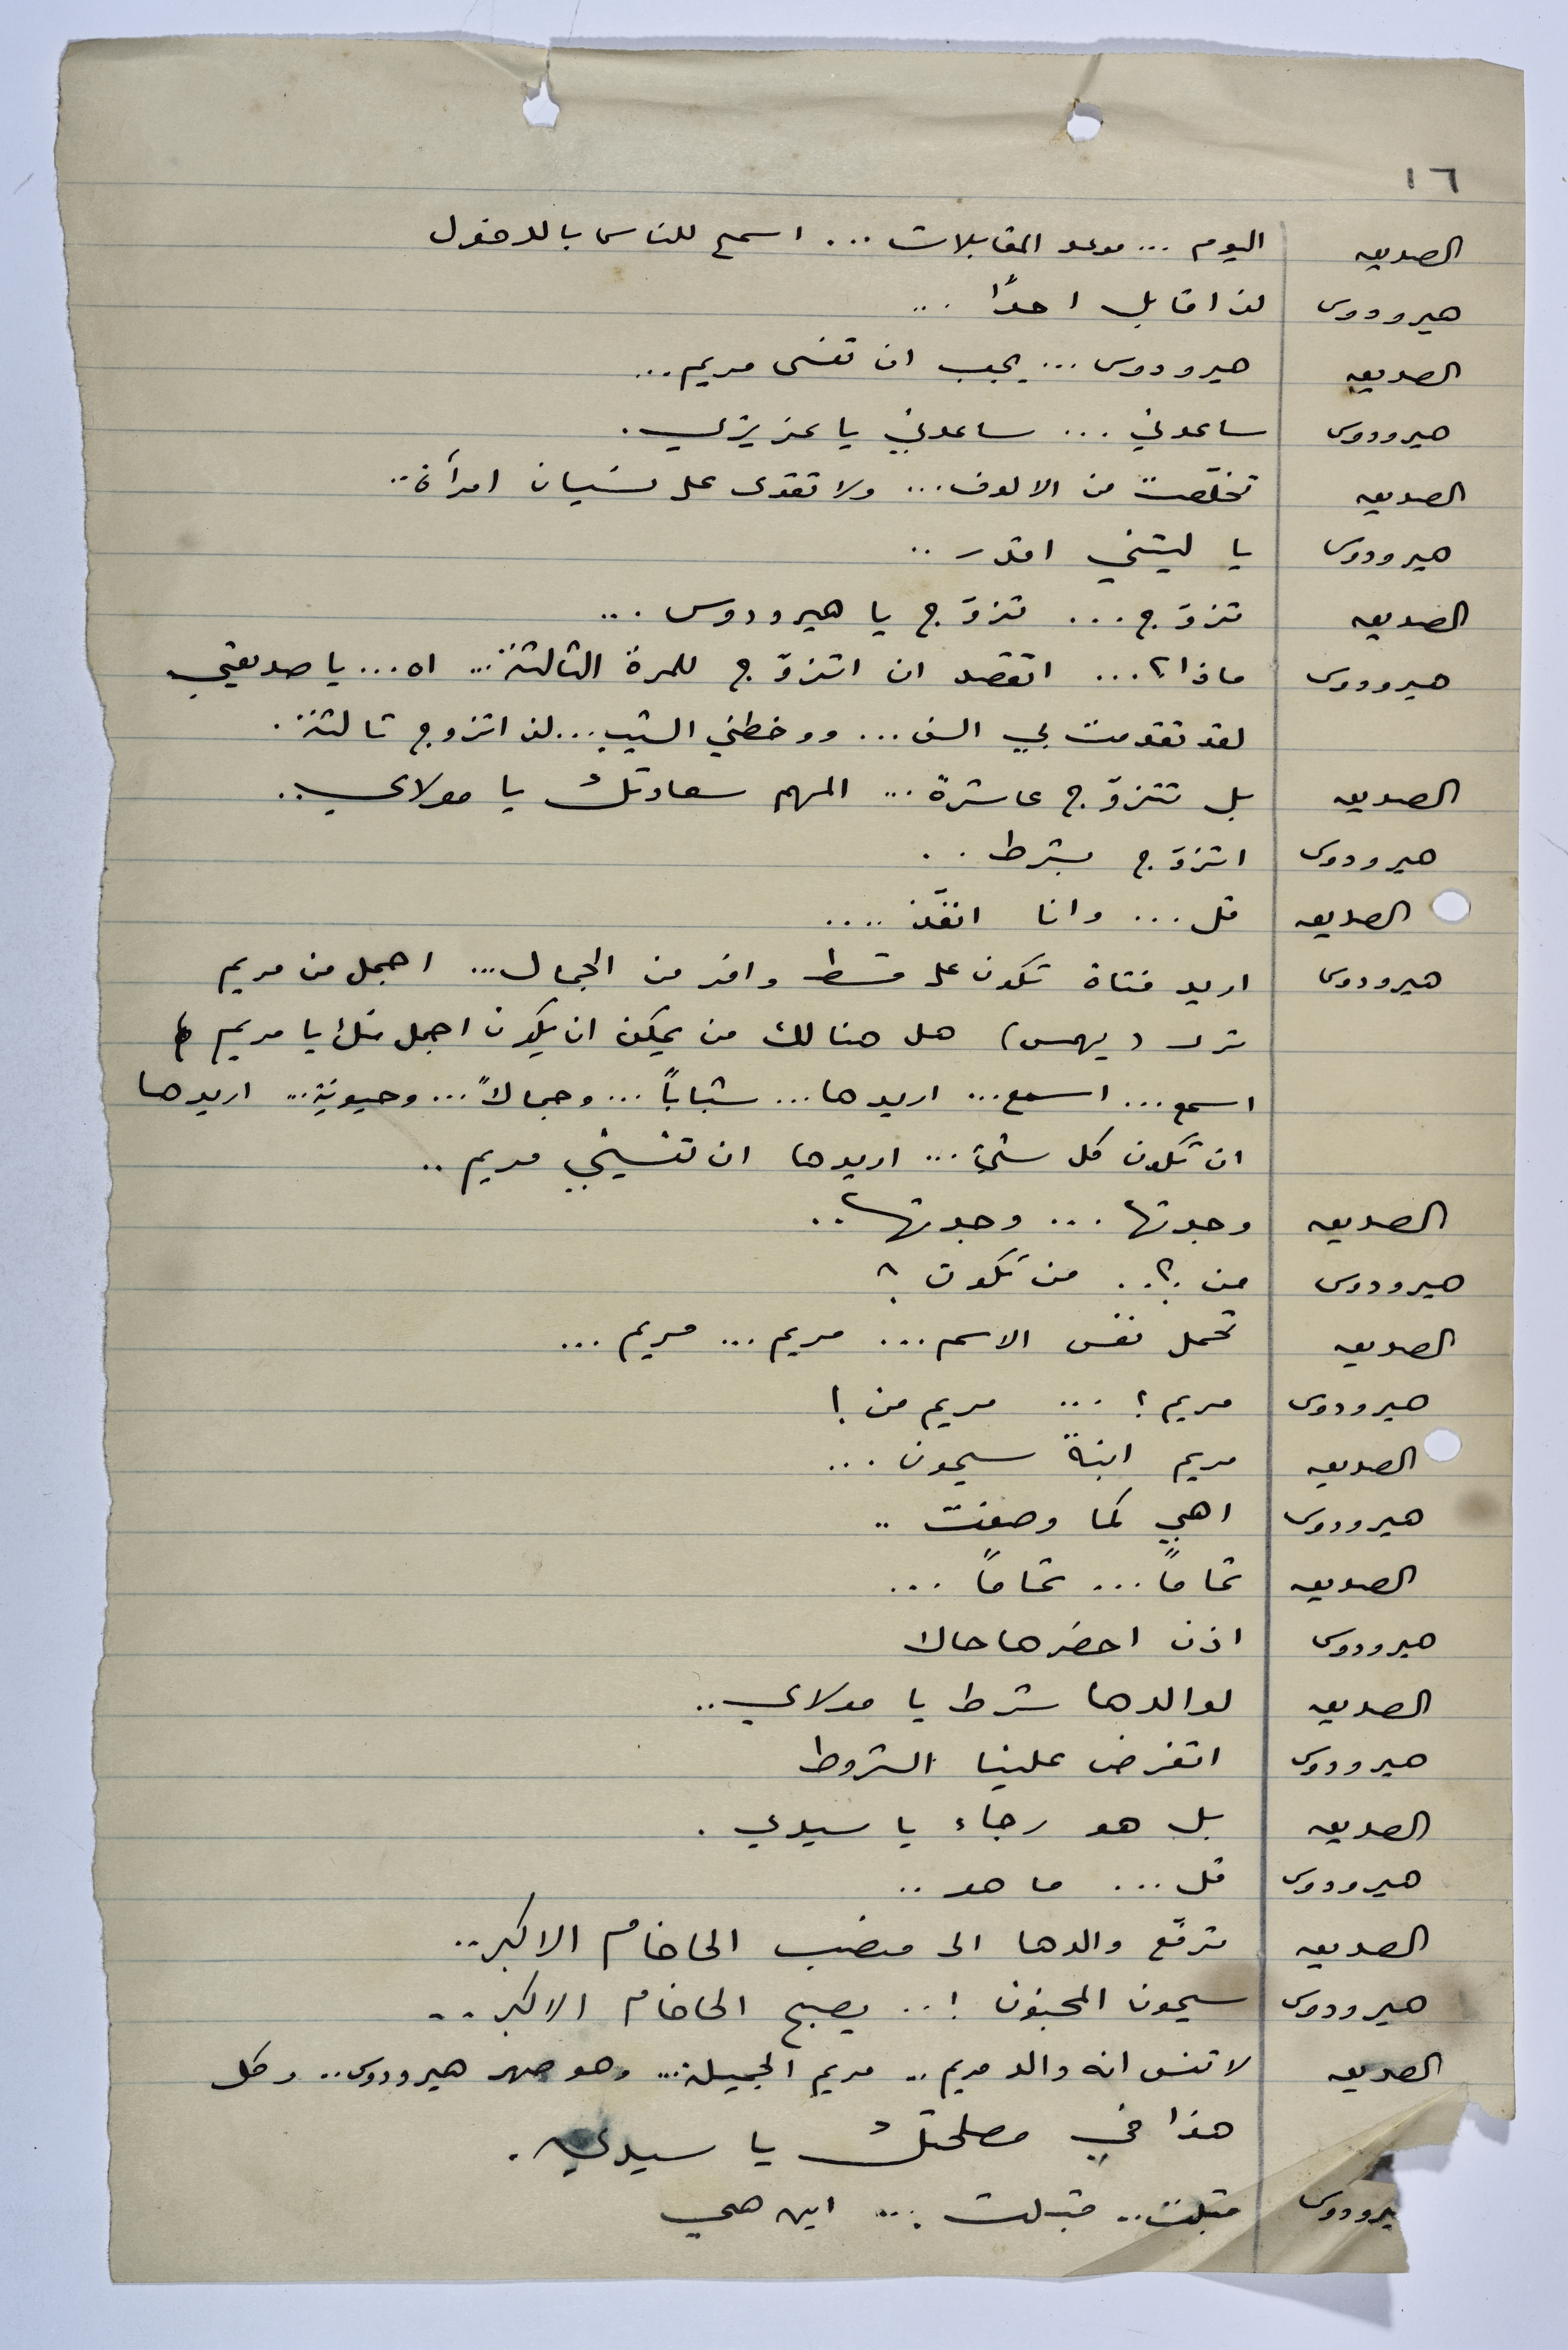 ١٦
الصديق اليوم ... موعد المقابلات ... اسمح للناس بالدخول
هيرودوس لن اقابل احدًا ...
الصديق هيرودوس ... يجب ان تنسى مريم ...
هيرودوس ساعدني ... ساعدني يا عزيزي .
الصديق تخلّصت من الالوف ... ولا تقوى على نسيان امرأة ..
هيرودوس يا ليتني اقدر ..
الصديق تزوّج ... تزوّج يا هيرودوس ...
هيرودوس ماذا ؟ ... اتقصد ان اتزوّج للمرة الثالثة ... اه ... يا صديقي
لقد تقدمت بي السن ... ووخطني الشيب ... لن اتزوج ثالثة .
الصديق بل تتزوّج عاشرة ... المهم سعادتك يا مولاي ..
هيرودوس اتزوّج بشرط ..
الصديق قل ... وانا انفّذ ....
هيرودوس اريد فتاة تكون على قسط وافر من الجمال ... اجمل من مريم
ترى (يهمس) هل هنالك من يمكن ان يكون اجمل منك يا مريم
اسمع ... اسمع ... اريدها ... شباباً ... وجمالاً ... وحيوية ... اريدها
ان تكون كل شيء ... اريدها ان تنسيني مريم ..
الصديق وجدتها ... وجدتها ..
هيرودوس من ؟ .. من تكون ؟
الصديق تحمل نفس الاسم ... مريم ... مريم ...
هيرودوس مريم ؟ ... مريم من !
الصديق مريم ابنة سيمون ...
هيرودوس اهي كما وصفت ..
الصديق تماماً ... تماماً ...
هيرودوس اذن احضرها حالا
الصديق لوالدها شرط يا مولاي ..
هيرودوس اتفرض علينا الشروط
الصديق بل هو رجاء يا سيدي .
هيرودوس قل ... ما هو ..
الصديق ترفّع والدها الى منصب الحاخام الاكبر ..
هيرودوس سيمون المجنون ! .. يصبح الحاخام الاكبر ..
الصديق لا تنس انه والد مريم .. مريم الجميلة ... وهو صهر هيرودوس .. وكل
هذا في مصلحتك يا سيدي .
يرودوس قبلت .. قبلت ... اين هي